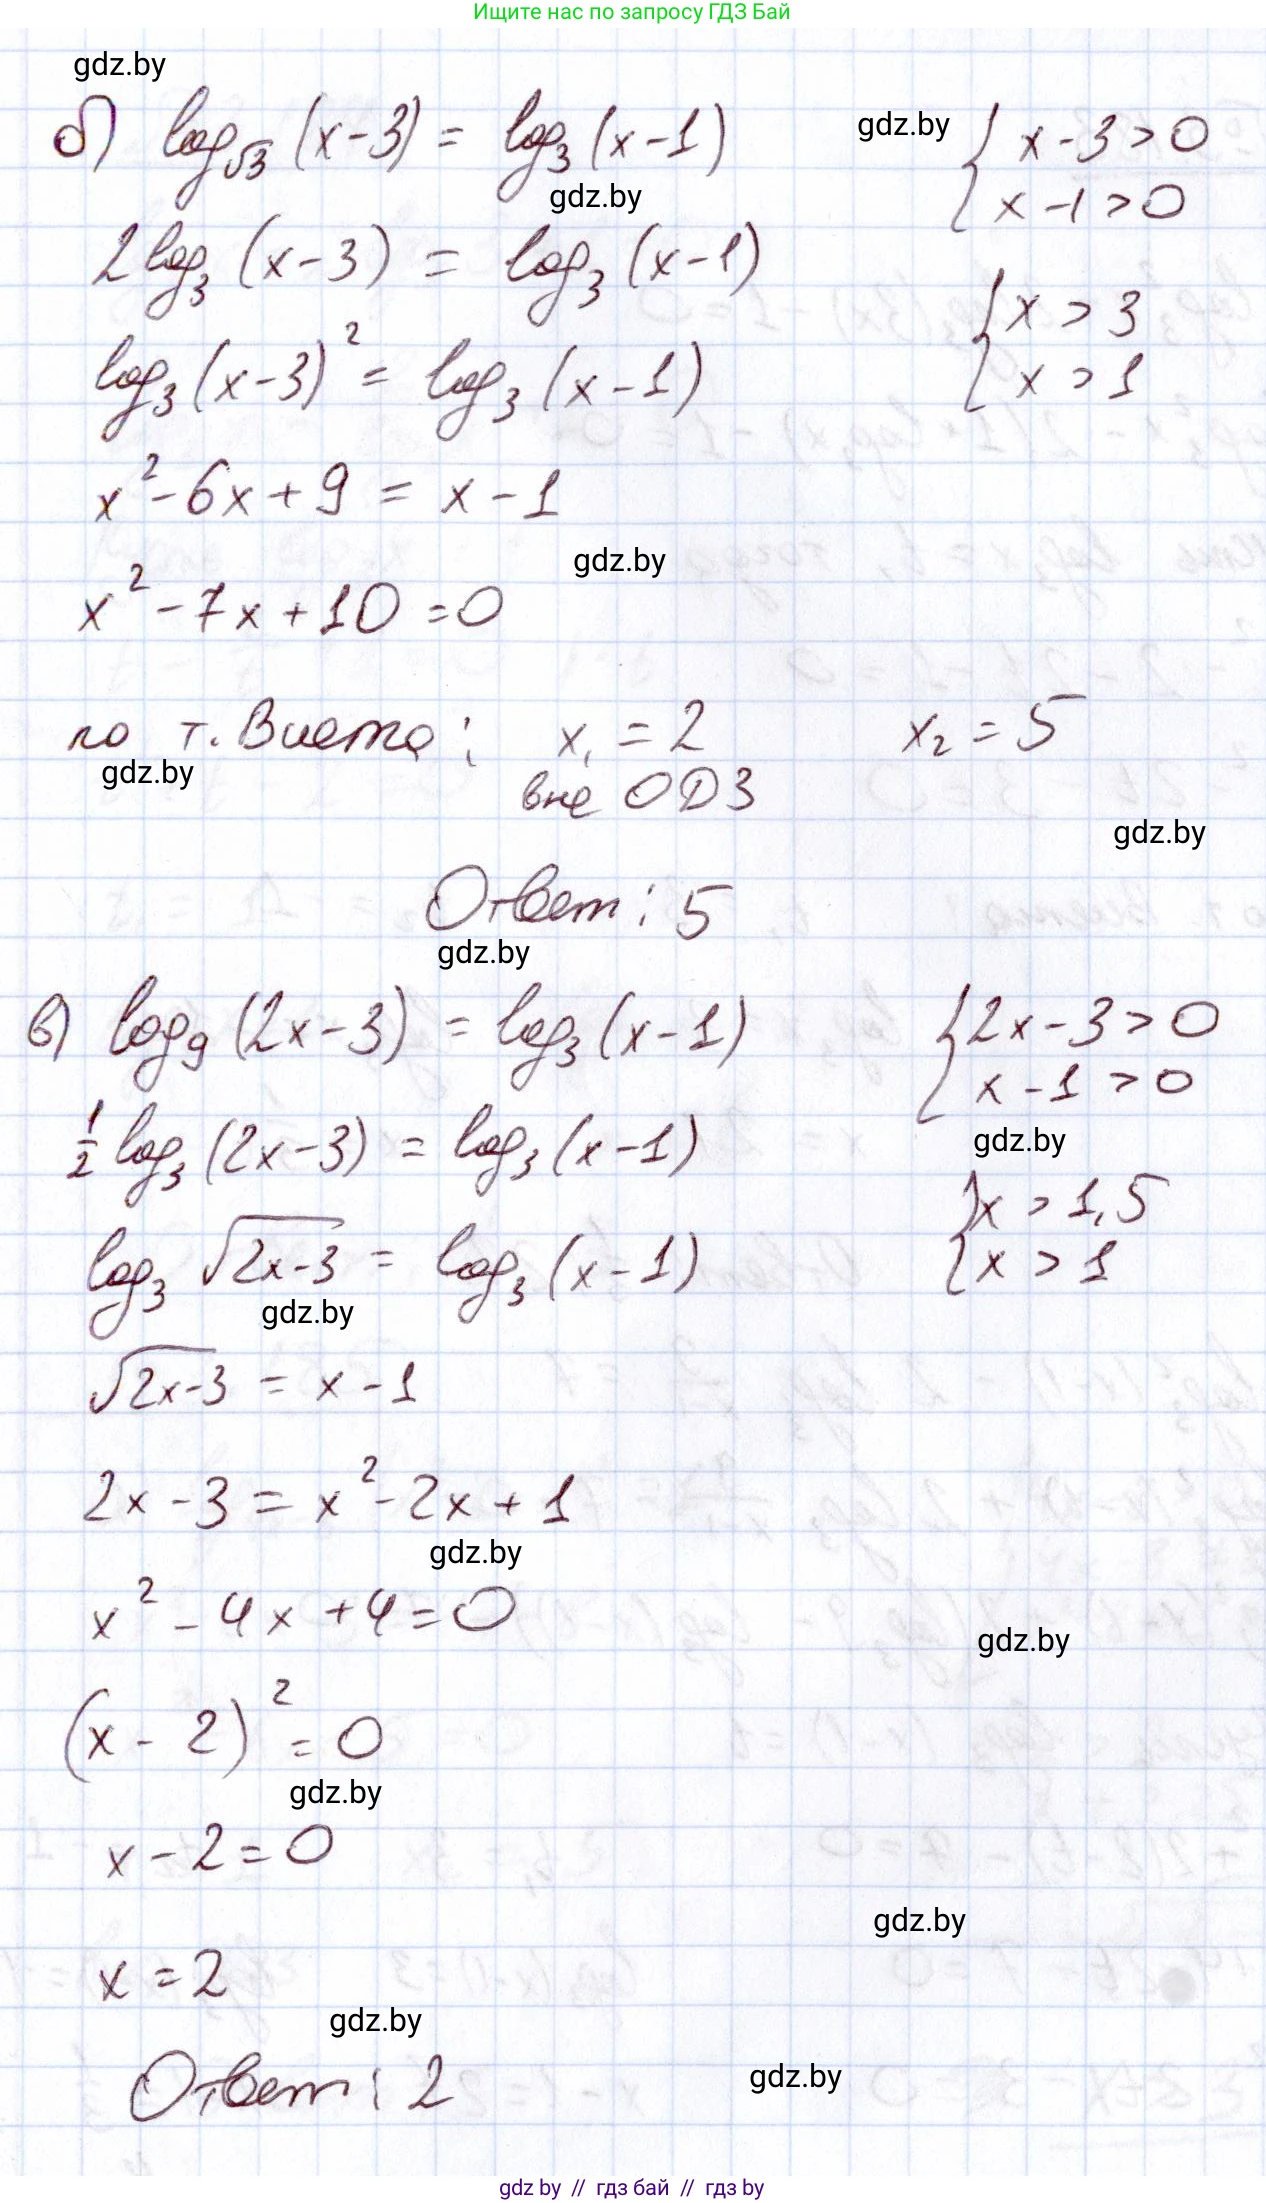 Ищите нас по запросу ГДЗ Бай
gdz.by
б) log_√3 (x-3) = log_3 (x-1)
gdz.by
{ x-3>0
x-1>0
gdz.by
2log_3 (x-3) = log_3 (x-1)
{ x > 3
x > 1
log_3 (x-3)² = log_3 (x-1)
x² - 6x + 9 = x - 1
gdz.by
x² - 7x + 10 = 0
по т. Виета: x₁ = 2 x₂ = 5
gdz.by
вне ОДЗ
gdz.by
Ответ: 5
gdz.by
в) log_9 (2x-3) = log_3 (x-1)
{ 2x-3>0
x-1>0
gdz.by
1/2 log_3 (2x-3) = log_3 (x-1)
{ x > 1,5
x > 1
log_3 √(2x-3) = log_3 (x-1)
gdz.by
gdz.by
√(2x-3) = x - 1
2x - 3 = x² - 2x + 1
gdz.by
x² - 4x + 4 = 0
gdz.by
(x - 2)² = 0
gdz.by
x - 2 = 0
gdz.by
x = 2
gdz.by
Ответ: 2
gdz.by
gdz by // гдз бай // гдз by